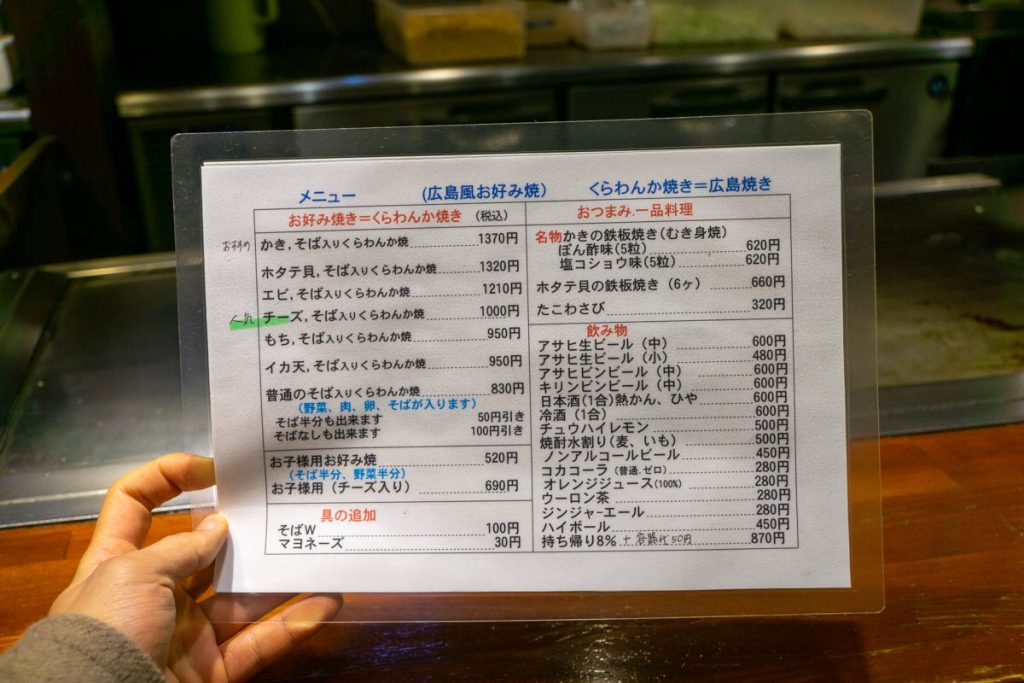 メニュー (広島風お好み焼) くらわんか焼き=広島焼き
お好み焼き=くらわんか焼き (税込)
おすすめ かき,そば入りくらわんか焼 1370円
ホタテ貝,そば入りくらわんか焼 1320円
エビ,そば入りくらわんか焼 1210円
人気 チーズ,そば入りくらわんか焼 1000円
もち,そば入りくらわんか焼 950円
イカ天,そば入りくらわんか焼 950円
普通のそば入りくらわんか焼 830円
(野菜、肉、卵、そばが入ります)
そば半分も出来ます 50円引き
そばなしも出来ます 100円引き
お子様用お好み焼 520円
(そば半分、野菜半分)
お子様用(チーズ入り) 690円
具の追加
そばW 100円
マヨネーズ 30円
おつまみ.一品料理
名物かきの鉄板焼き(むき身焼)
ぽん酢味(5粒) 620円
塩コショウ味(5粒) 620円
ホタテ貝の鉄板焼き(6ヶ) 660円
たこわさび 320円
飲み物
アサヒ生ビール(中) 600円
アサヒ生ビール(小) 480円
アサヒビンビール(中) 600円
キリンビンビール(中) 600円
日本酒(1合)熱かん、ひや 600円
冷酒(1合) 600円
チュウハイレモン 500円
焼酎水割り(麦、いも) 500円
ノンアルコールビール 450円
コカコーラ(普通.ゼロ) 280円
オレンジジュース(100%) 280円
ウーロン茶 280円
ジンジャーエール 280円
ハイボール 450円
持ち帰り8% +容器代50円 870円